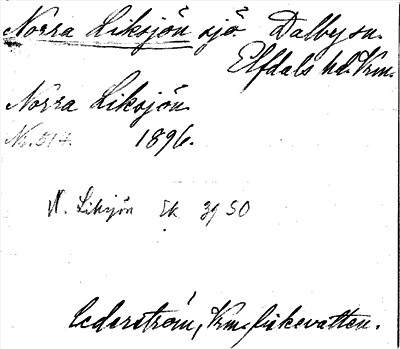 Norra Liksjön sjö Dalby sn.
Elfdals hd. Vrm.
Norra Liksjön.
Nr. 514. 1896.
N. Liksjön Ek 39 50
Cederström, Vrm. fiskevatten.